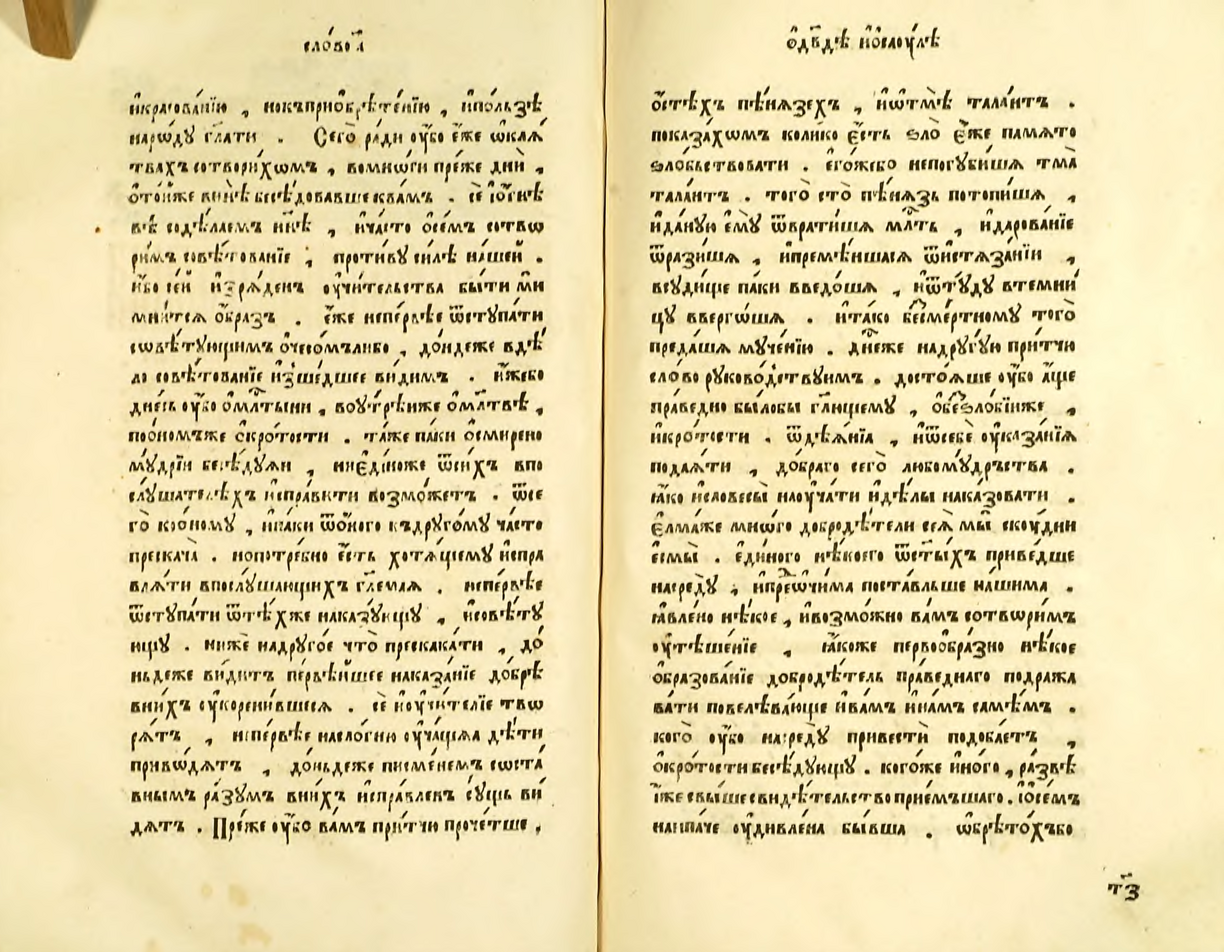 сло́во а҃
и҆красова́нїю , нокъприѡбрѣте́нїю , и҆по́льзѣ
наро́дꙋ гл҃ати . Сего̀ ра́ди оу҆́бо е҆́же ѡ҆клѧ́
твахъ сотвори́хомъ , вомно́ги пре́же дни̑ ,
ѿто́ѧже вины̀ бесѣ́довавше квамъ . се́ ѡ҆гнѣ
вѣ̀ содѣ́лаемъ нн҃ѣ , и҆ча́сто ѡ҆се́мъ сотво
ри́мъ совѣ́тованїе , проти́вꙋ си́лѣ на́шей .
и҆́бо се́й и҆зрѧ́денъ оу҆чи́тельства бы́ти мѝ
мни́тсѧ о҆́бразъ . е҆́же непе́рвѣе ѿстꙋпа́ти
совѣ́тꙋющимъ о҆чесо́мълибо , до́ндеже вдѣ́
ло совѣ́тованїе и҆зше́дшее ви́димъ . и҆́жебо
дне́сь оу҆́бо о҆мл҃тыни , воу҆́трѣиже о҆мл҃твѣ ,
поо́номъже о҆кро́тости . та́же па́ки о҆смирено
мꙋ́дрїи бесѣ́дꙋѧи , ниеди́ноже ѿси́хъ впо
слꙋ́шателѣхъ и҆спра́вити возмо́жетъ . ѿсе
го̀ ко́ономꙋ , и҆па́ки ѿо́ного къдрꙋго́мꙋ ча́сто
прескача̀ . нопотре́бно е҆́сть хотѧ́щемꙋ и҆спра
влѧ́ти впослꙋ́шающихъ гл҃емаѧ . непе́рвѣе
ѿстꙋпа́ти ѿтѣ́хже наказꙋ́ющꙋ , и҆совѣ́тꙋ
ющꙋ . нижѐ надрꙋго́е что̀ прескака́ти , до́
ньдеже ви́дитъ первѣ́йшее наказа́нїе до́брѣ
вни́хъ оу҆коре́нившеесѧ . се́ и҆оу҆чи́телїе тво
рѧ́тъ , непе́рвѣе насло́гию оу҆ча́щѧѧ дѣ́ти
приво́дѧтъ , до́ньдеже писме́немъ соста́
внымъ ра́зꙋмъ вни́хъ и҆спра́вленъ сꙋ́щь ви́
дѧтъ . Пре́же оу҆́бо ва́мъ при́тчю проче́тше ,
ѡ҆дв҃дѣ и҆ѡ҆саꙋ́лѣ
о҆стѣ́хъ пѣ́нѧзехъ , и҆ѡтмѣ̀ тала́нтъ .
показа́хомъ коли́ко е҆́сть ѕло̀ е҆́же памѧто
ѕло́бьствовати . е҆го́жебо непогꙋби́шѧ тма̀
тала́нтъ . того̀ сто̀ пѣ́нѧзь потопи́шѧ ,
и҆да́нꙋю е҆мꙋ̀ ѿврати́шѧ мл҃ть , и҆дарова́нїе
ѿрази́шѧ , и҆премѣ́ншасѧ ѿи҆стѧза́нїи ,
всꙋ́дище па́ки введо́шѧ , и҆ѿтꙋ́дꙋ втемни́
цꙋ вверго́шѧ . и҆та́ко бесме́ртномꙋ того̀
преда́шѧ мꙋче́нїю . дн҃еже надрꙋгꙋ́ю при́тчю
сло́во рꙋково́дствꙋимъ . досто́ѧше оу҆́бо а҆́ще
пра́ведно бы́лобы гл҃ющемꙋ , о҆беѕло́бїиже ,
и҆кро́тости . ѿдѣѧ́нїѧ , и҆ѿсебѐ оу҆каза́нїѧ
подаѧ́ти , до́браго сего̀ любомꙋ́дръства .
ꙗ҆́ко и҆словесы̀ наоу҆ча́ти и҆дѣ́лы нака́зовати .
е҆лма́же мно́го добродѣ́тели сеѧ̀ мы̀ скоу́дни
е҆смы̀ . е҆ди́ного нѣ́коего ѿст҃ы́хъ приве́дше
насредꙋ̀ , и҆пре́ѡ҆чи́ма поста́вльше на́шима .
ꙗ҆вле́но нѣ́кое , и҆возмо́жно ва́мъ сотвори́мъ
оу҆тѣше́нїе , ꙗ҆́коже первоѡбра́зно нѣ́кое
о҆бразова́нїе добродѣ́тель пра́веднаго подража
ва́ти повелѣва́юще и҆ва́мъ и҆на́мъ самѣ́мъ .
кого̀ оу҆́бо насредꙋ̀ привестѝ подоба́етъ ,
о҆кро́тости бесѣ́дꙋющꙋ . кого́же и҆́ного , ра́звѣ
и҆́же свы́ше свидѣ́тельство прие́мъшаго . и҆ѡ҆се́мъ
наипа́че оу҆дивле́на бы́вша . ѡ҆брѣто́хъбо
т҃з